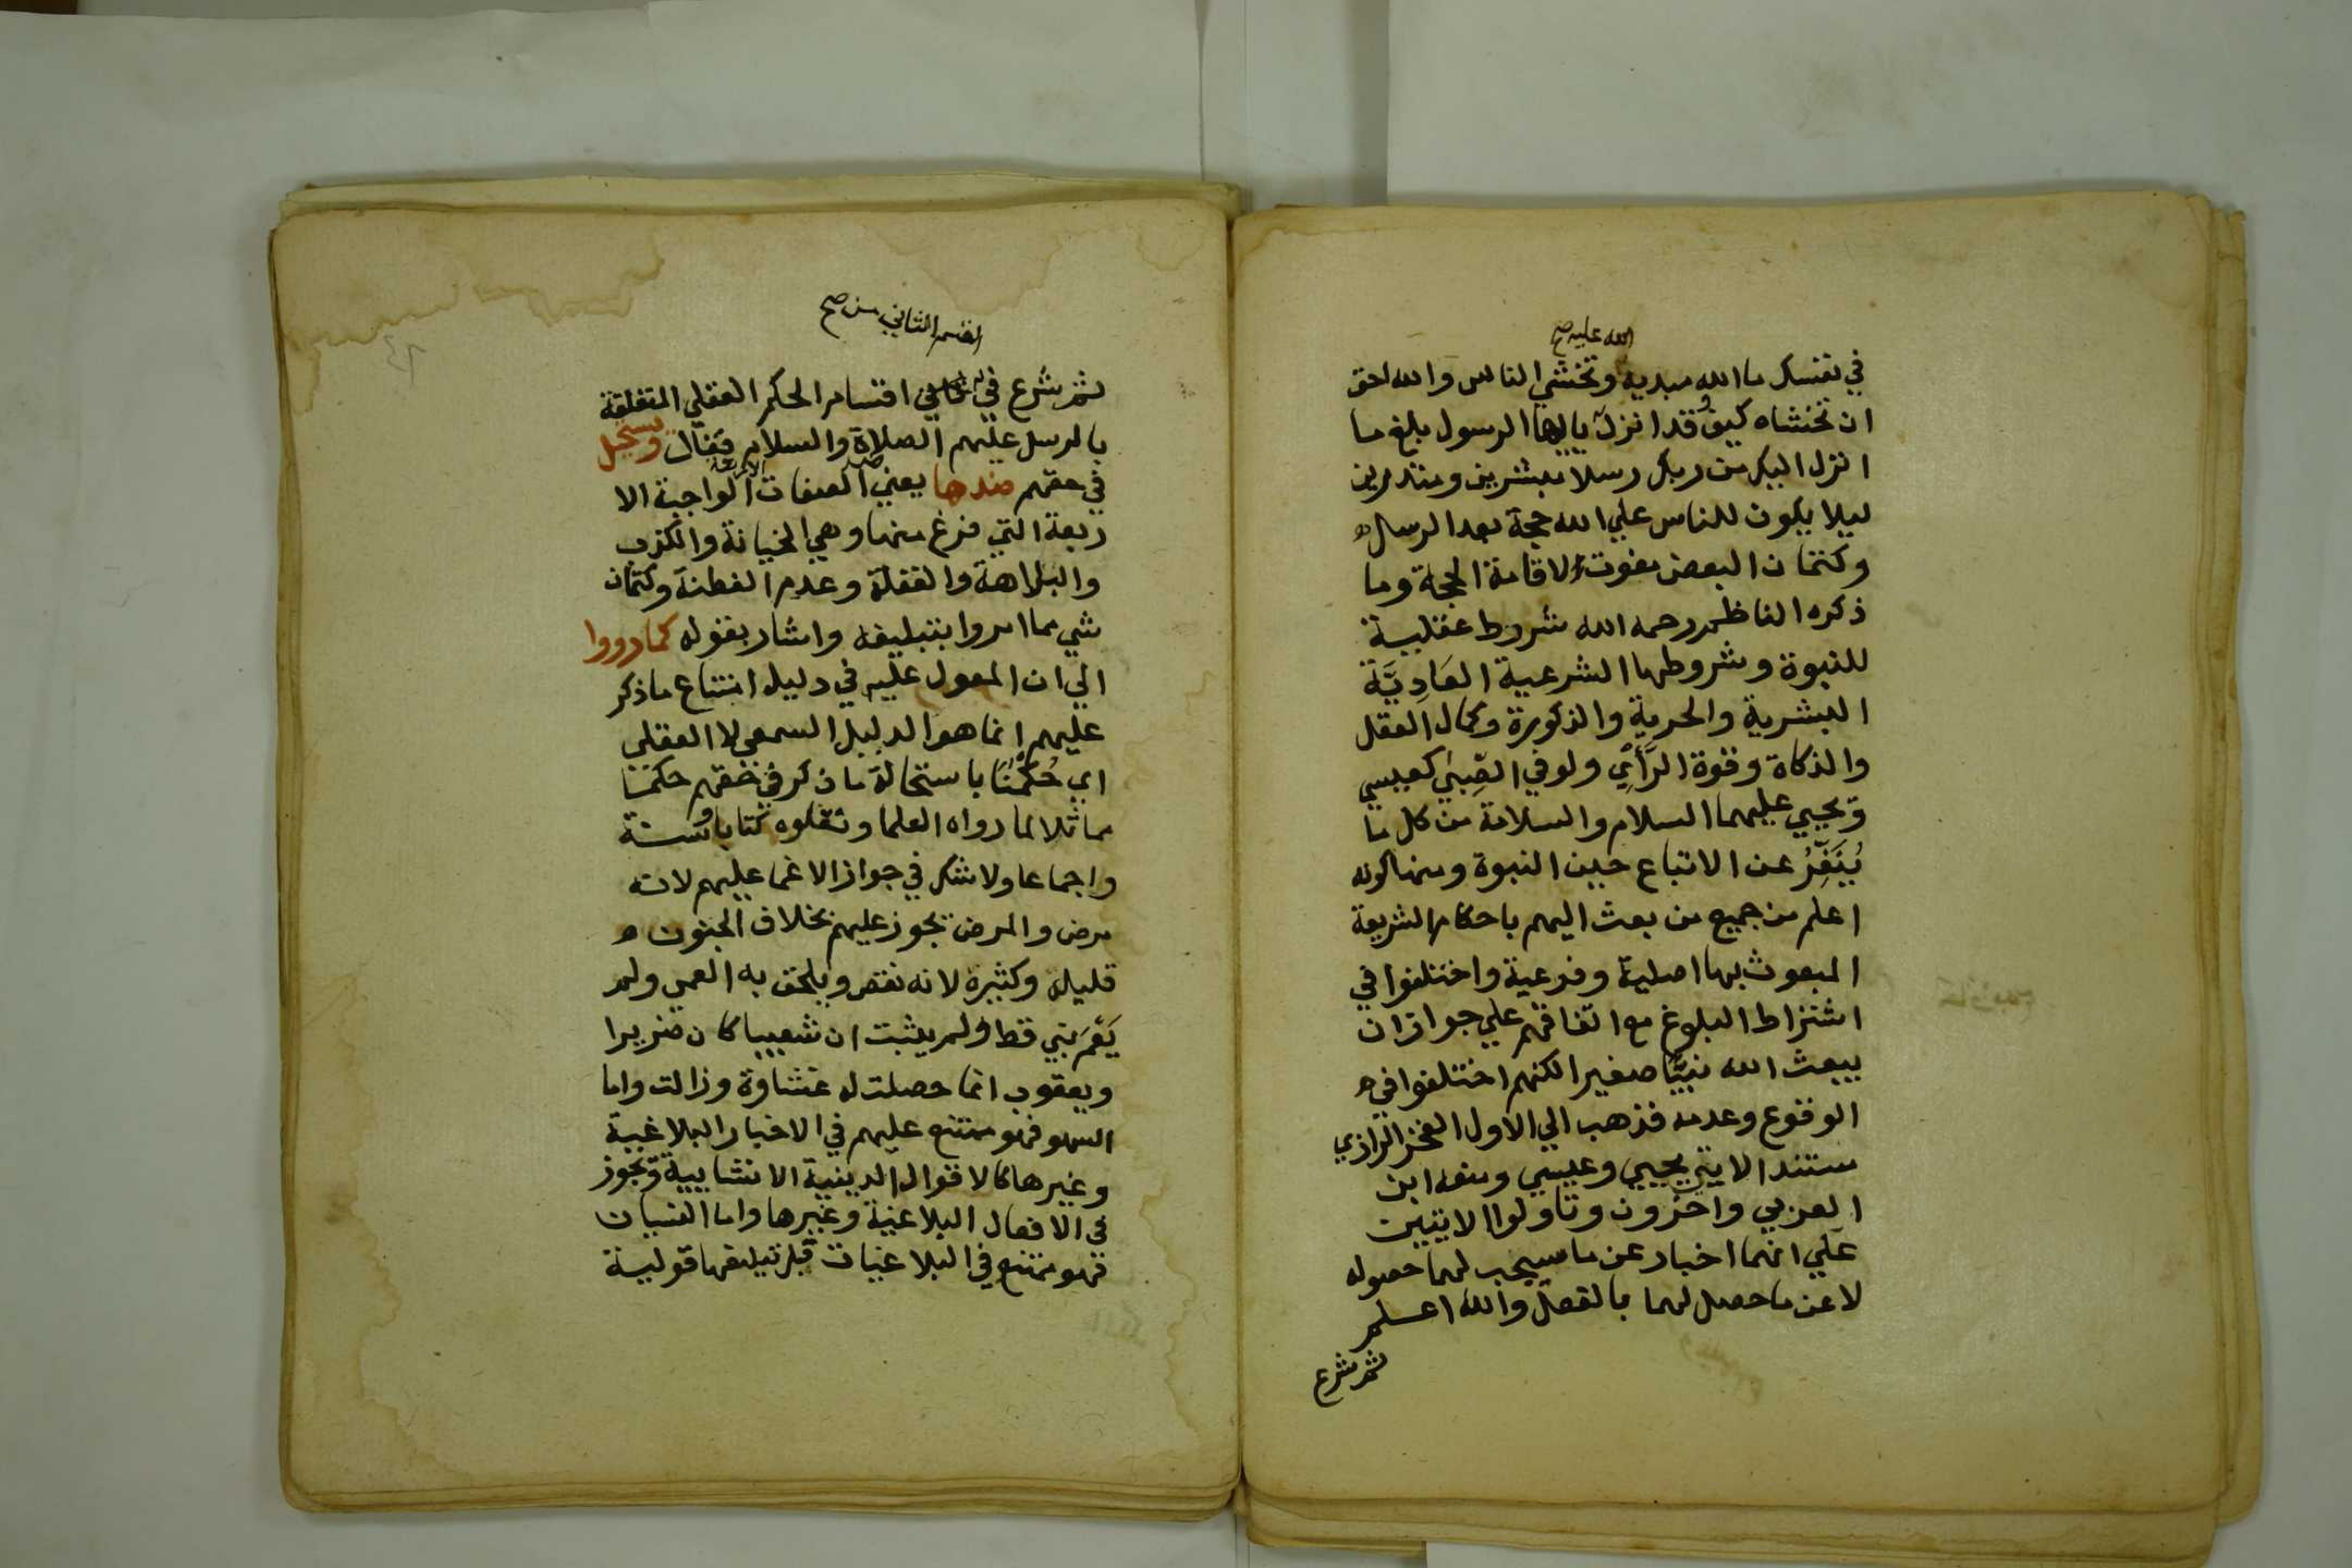 الله عليه صح
في نفسك ما الله مبديه وتخشي الناس والله احق
ان تخشاه كيف وقد انزل ياايها الرسول بلغ ما
انزل اليك من ربك رسلا مبشرين ومنذرين
ليلا يكون للناس علي الله حجة بعد الرسل
وكتمان البعض مفوت لاقامة الحجة وما
ذكره الناظم رحمه الله شروط عقلية
للنبوة وشروطها الشرعية العَادِيَّة
البشرية والحرية والذكورة وكمال العقل
والذكاة وقوة الرَّأيِ ولو في الصِّبَيٰ كعيسي
ويحيي عليهما السلام والسلامة من كل ما
يُنَفِّرُ عن الاتباع حين النبوة ومنها كونه
اعلم من جميع من بعث اليهم باحكام الشريعة
المبعوث بها اصلية وفرعية واختلفوا في
اشتراط البلوغ مع اتفاقهم علي جواز ان
يبعث الله نبيًّا صغيرا لكنهم اختلفوا في
الوقوع وعدمه فذهب الي الاول الفخر الرازي
مستندا لايتي يحيي وعيسي ومنعه ابن
العربي واخرون وتاولوا الايتين
علي انهما اخبار عن ما سيجب لهما حصوله
لا عن ما حصل لهما بالفعل والله اعلم
ثم شرع
القسم الثاني من صح
ثم شرع في اقسام الحكم العقلي المتعلقة
بالرسل عليهم الصلاة والسلام فقال ويستحيل
في حقهم ضدها يعني الصفات الواجبة الا
ربعة التي فرغ منها وهي الخيانة والكذب
والبلاهة والغفلة وعدم الفطنة وكتمان
شي مما امروا بتبليغه واشار بقوله كما رووا
الي ان المعول عليه في دليل امتناع ما ذكر
عليهم انما هو الدليل السمعي لا العقلي
اي حُكْمُنَا باستحالة ما ذكر في حقهم حكمنا
مماثلا لما رواه العلما ونقلوه كتابا وسنة
واجماعا ولا شك في جواز الاغما عليهم لانه
مرض والمرض يجوز عليهم بخلاف الجنون
قليله وكثيره لانه نقص ويلحق به العمي ولم
يَعْمَ نبي قط ولم يثبت ان شعيبا كان ضريرا
ويعقوب انما حصلت له غشاوة وزالت واما
السهو فهو ممتنع عليهم في الاخبار البلاغية
وغيرها كالاقوال الدينية الانشايية ويجوز
في الافعال البلاغية وغيرها واما النسيان
فهو ممتنع في البلاغيات قبل تبليغها قولية